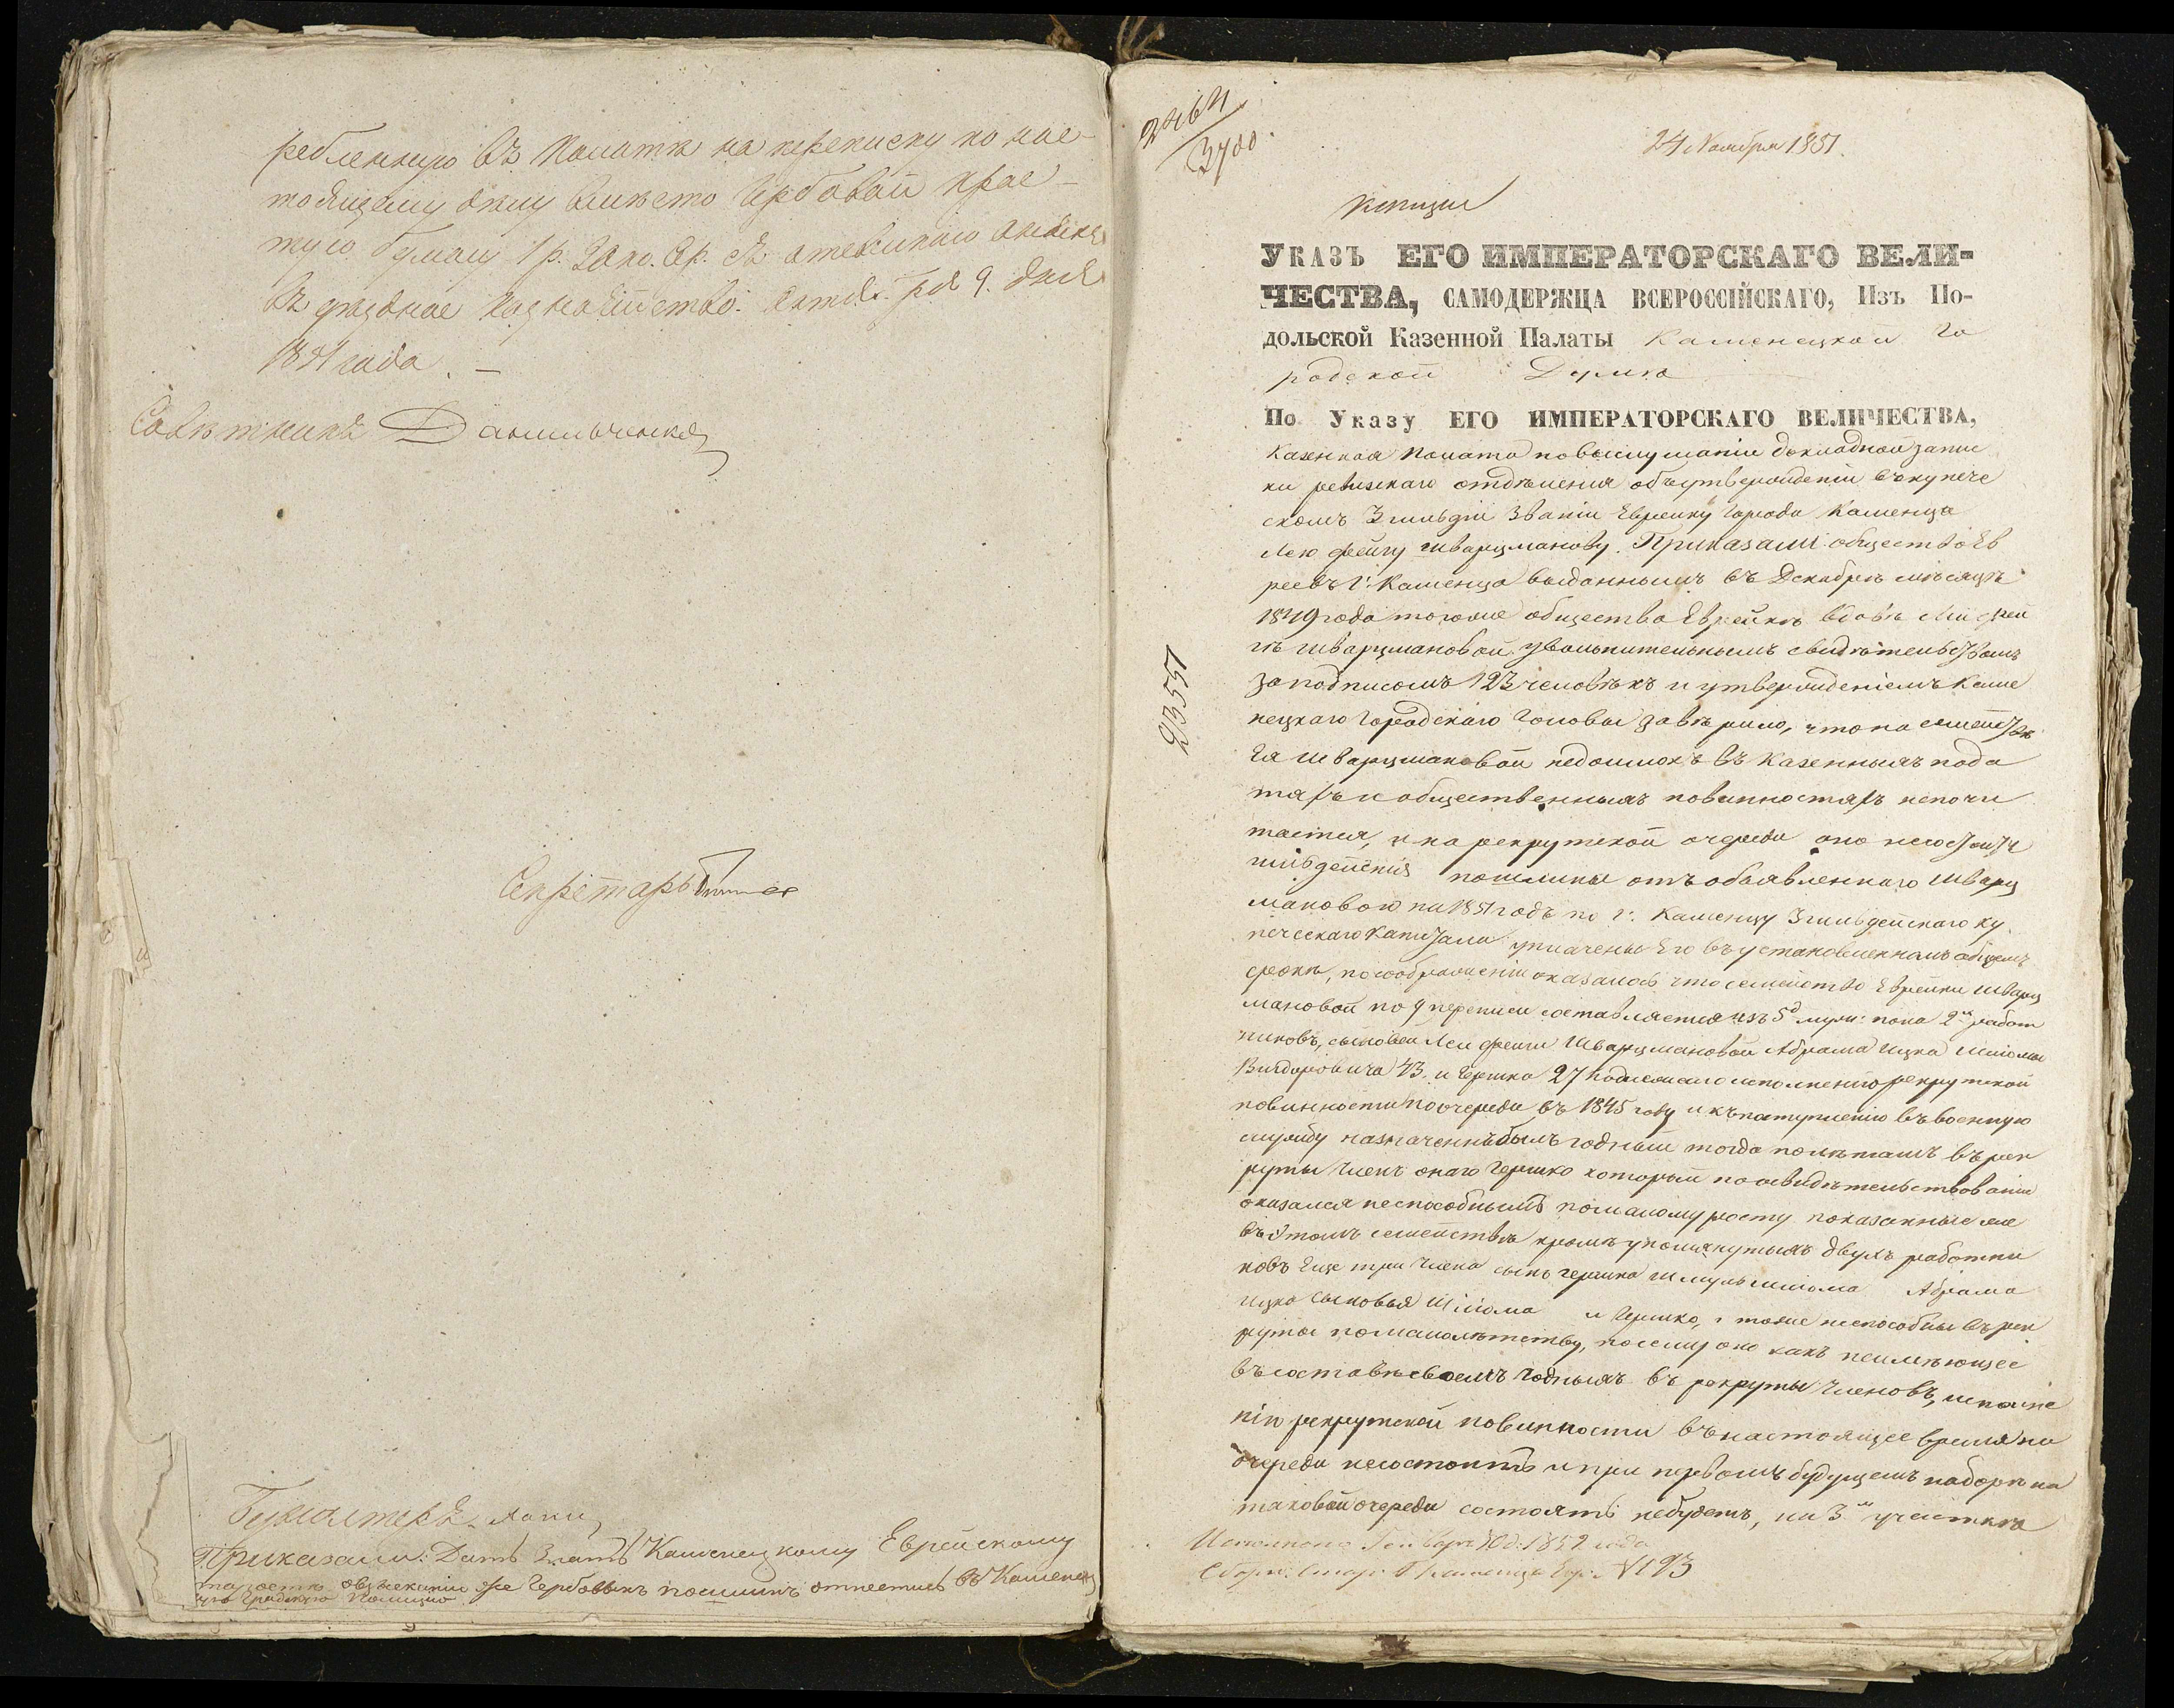 ребленную въ Палатѣ на переписку по нас-
тоящему дѣлу вмѣсто Гербовой прос-
тую бумагу 1 р. сер. съ отсылкою
въ уѣздное Казначейство. 9. дня
1851 года. —
Совѣтникъ
Секретарь
Бухгалтеръ
Приказали: Дать знать Каменецкому Еврейскому
о взысканіи же Гербовыхъ пошлинъ отнестись въ Каменец
кую Градскую Полицію
2464
3700.
24 Ноября 1851.
Копіи
УКАЗЪ ЕГО ИМПЕРАТОРСКАГО ВЕЛИ-
ЧЕСТВА, САМОДЕРЖЦА ВСЕРОССІЙСКАГО, Изъ По-
дольской Казенной Палаты Каменецкой Го
родской Думѣ
По Указу ЕГО ИМПЕРАТОРСКАГО ВЕЛИЧЕСТВА,
Казенная Палата по выслушаніи докладной запис
ки ревизскаго отдѣленія объ утвержденіи въ купече
скомъ 3 гильдіи званіи Еврейку города Каменца
Лею Фейгу Шварцманову. Приказали: общество Ев
реевъ г. Каменца выданнымъ въ Декабрѣ мѣсяцѣ
1849 года того же общества Еврейкѣ вдовѣ Леи Фей
гѣ Шварцмановой увольнительнымъ свидѣтельствомъ
за подписомъ 123 человѣкъ и утвержденіемъ Каме
нецкаго Городскаго Головы завѣрило, что на семейств
ѣ Шварцмановой недоимокъ въ казенныхъ пода
тяхъ и общественныхъ повинностяхъ не почи
тается, и на рекрутской очереди оно не состоитъ
гильдейскія пошлины отъ объявленнаго Шварц
мановою на 1851 годъ по г. Каменцу 3 гильдейскаго ку
печескаго капитала уплачены Ею въ установленномъ общемъ
срокѣ, по соображеніи оказалось что семейство Еврейки Шварц
мановой по 9 переписи составляется изъ 5 муж: пола 2 работ
никовъ, сыновей Леи Фейги Шварцмановой Абрама Ицка Шлiомы
Вигдоровича 43. и Гершка 27 подлежало исполненію рекрутской
повинности по очереди въ 1845 году и къ поступленію въ военную
службу назначенъ былъ годный тогда по лѣтамъ въ рек
руты членъ онаго Гершко который по освидѣтельствованіи
оказался неспособнымъ по малому росту показанные же
въ этомъ семействѣ кромѣ упомянутыхъ двухъ работни
ковъ Еще три члена сынъ Гершка Шмуль Шлiома Абрама
Ицка сыновья Шлiома и Гершко, тоже неспособны въ рек
руты по малолѣтству, посему оно какъ неимѣющее
въ составѣ своемъ годныхъ въ рекруты членовъ, исполне
нію рекрутской повинности въ настоящее время на
очереди несостоитъ и при первомъ будущемъ наборѣ на
таковой очереди состоять небудетъ, на 3 участкѣ
23551
Исполнено Генваря 1852 года
№ 193